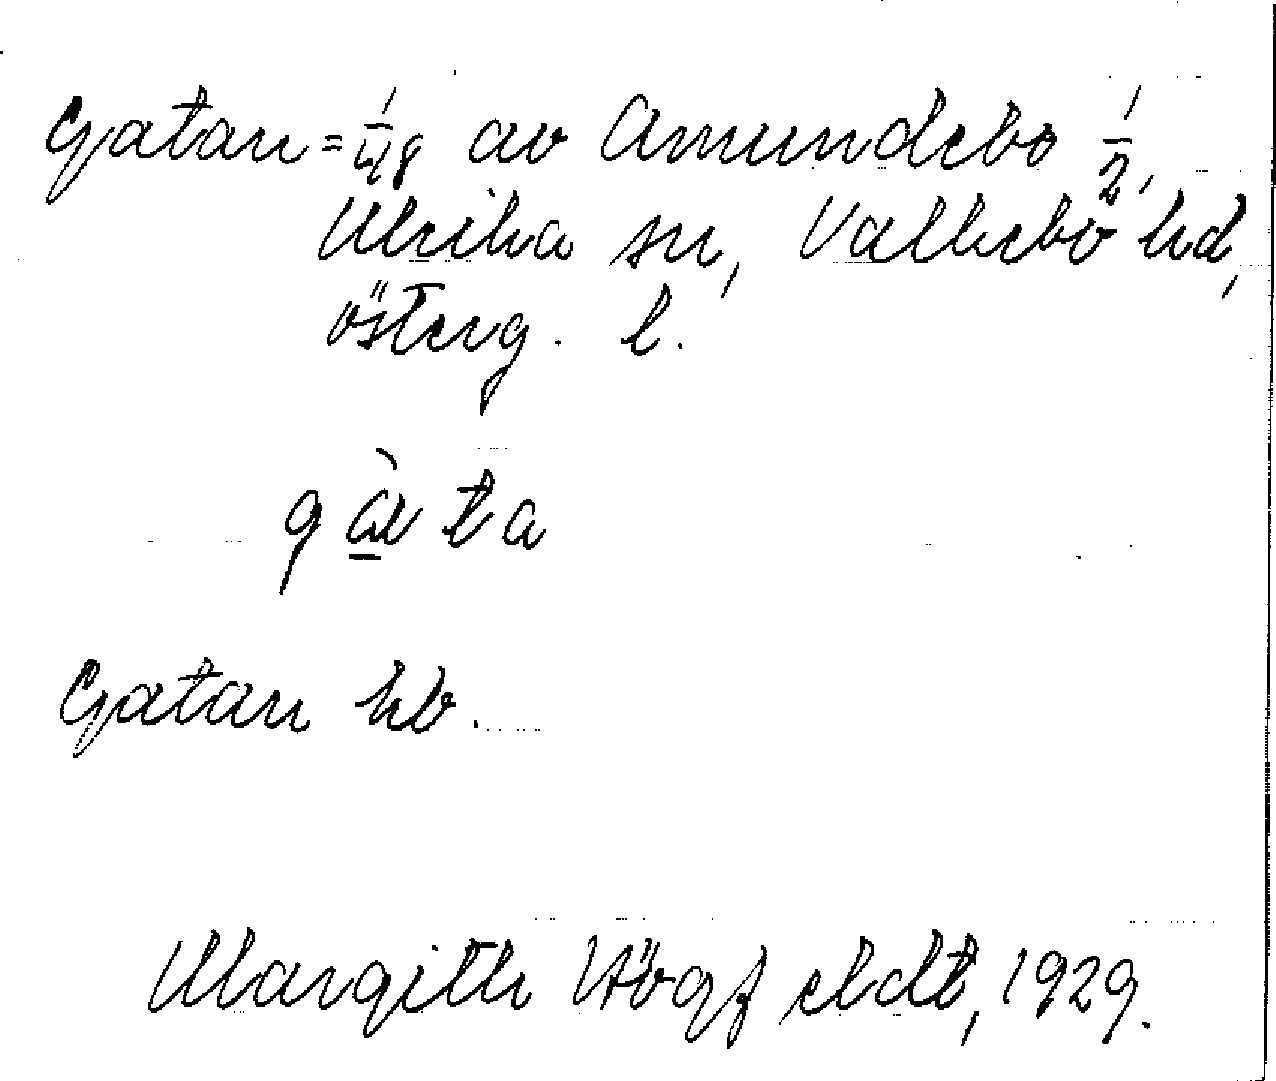 Gatan = 1/48 av Amundebo 1/2,
Ulrika sn, Vallebo hd,
Österg. l.
gàta
Gatan hb.
Margith Högfeldt, 1929.